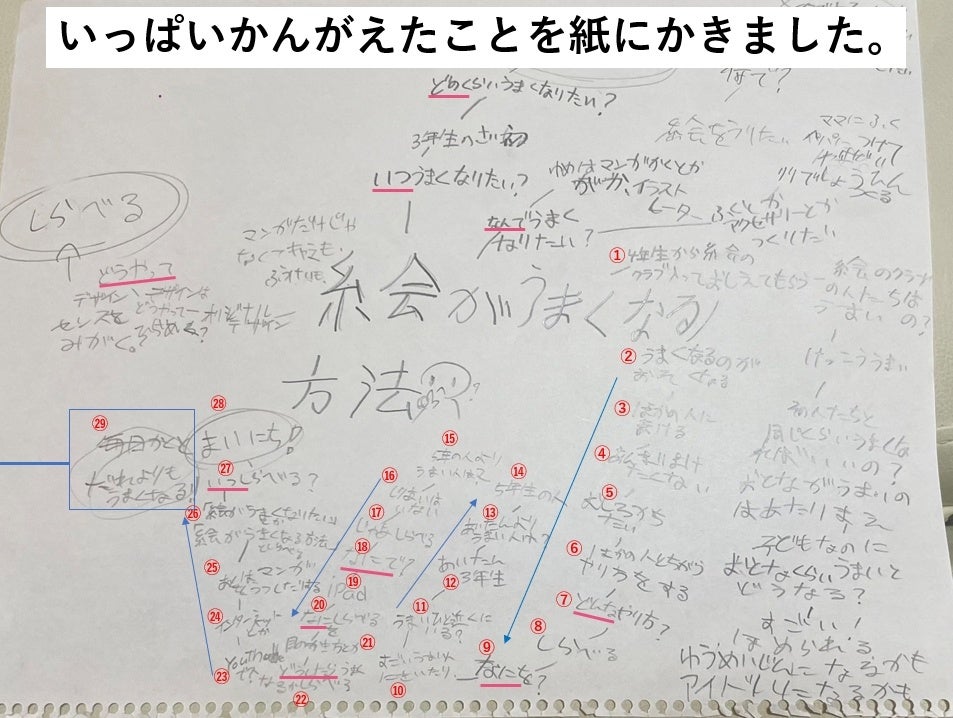 いっぱいかんがえたことを紙にかきました。
どのくらいうまくなりたい?
3年生のさい初
いつうまくなりたい?
なんでうまく
なりたい?
ゆめはマンガかくとか
がか、イラスト
レーター
ふくとか
アクセサリーとか
つくりたい
絵をうりたい
ママにふく
つけて
しょうひん
つくる
しらべる
どうやって
デザイン
センスを
みがく。
デザインは
どうやって
オリジナル
デザイン
マンガだけじゃ
なくてキャラも、
ふうけいも、
絵がうまくなる
方法
① 4年生から絵の
クラブ入っておしえてもらう
絵のクラブ
の人たちは
うまいの?
けっこううまい
同じくらいうまくな
ればいいの?
おとながうまいの
はあたりまえ
子どもなのに
おとなくらいうまいと
どうなる?
すごい!
ほめられる
ゆうめいじんになるかも
アイドルになるかも
② うまくなるのが
おそくなる
③ ほかの人に
まける
④ あんまりまけ
たくない
⑤ むしろかち
たい
⑥ ほかの人とちがう
やり方をする
⑦ どんなやり方?
⑧ しらべる
⑨ なにを?
⑩ すごいうまい人
にといたり
⑪ うまいひと近くに
いる?
⑫ あいたん
3年生
⑬ あいたんより
うまい人は?
⑭ 5年生の人
⑮ 5年の人より
うまい人は?
⑯ じまいは
いない
⑰ じゃあしらべる
⑱ なにで?
⑲ iPad
⑳ なにをしらべる
㉑ 目のかき方とか
㉒ どうしたらうまく
なるかしらべる
㉓ Youtube
で?
㉔ インターネット
とか
㉕ マンガ
㉖ 絵がうまくなりたい
絵がうまくなる方法
㉗ いつしらべる?
㉘ まいにち!
㉙ 毎日かくと
だれよりも
うまくなる!!